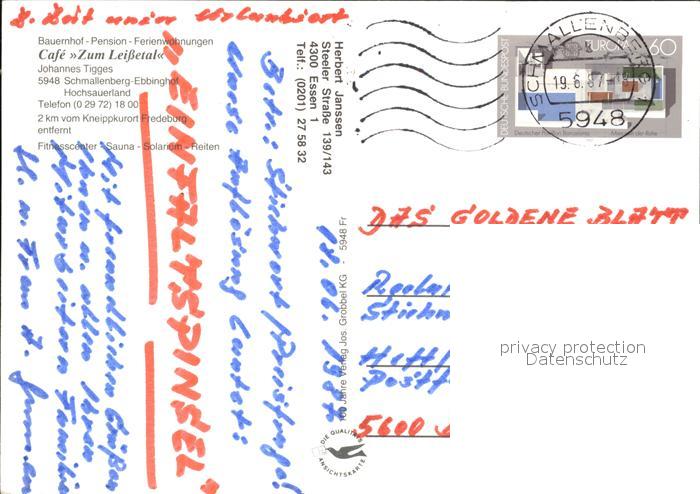 z. Zeit unser Urlaubsort
Bauernhof - Pension - Ferienwohnungen
Café »Zum Leißetal«
Johannes Tigges
5948 Schmallenberg-Ebbinghof
Hochsauerland
Telefon (0 29 72) 18 00
2 km vom Kneippkurort Fredeburg
entfernt
Fitnesscenter - Sauna - Solarium - Reiten
Herbert Janssen
Steeler Straße 139/143
4300 Essen 1
Telf.: (0201) 27 58 32
18.06.1987
Betr.: Stichwort Preisfrage!
unsere Auflösung lautet:
"EINFALTSPINSEL"
Mit freundlichen Grüßen
Ihnen u. allen Ihren
Mitarbeitern
Familie
H. u. Frau
100 Jahre Verlag Jos. Grobbel KG - 5948 Fr
DIE QUALITÄTS
ANSICHTSKARTE
DEUTSCHE BUNDESPOST
EUROPA
60
Deutscher Pavillon Barcelona
Mies van der Rohe
SCHMALLENBERG
19.6.87
5948
DAS GOLDENE BLATT
5600
privacy protection
Datenschutz